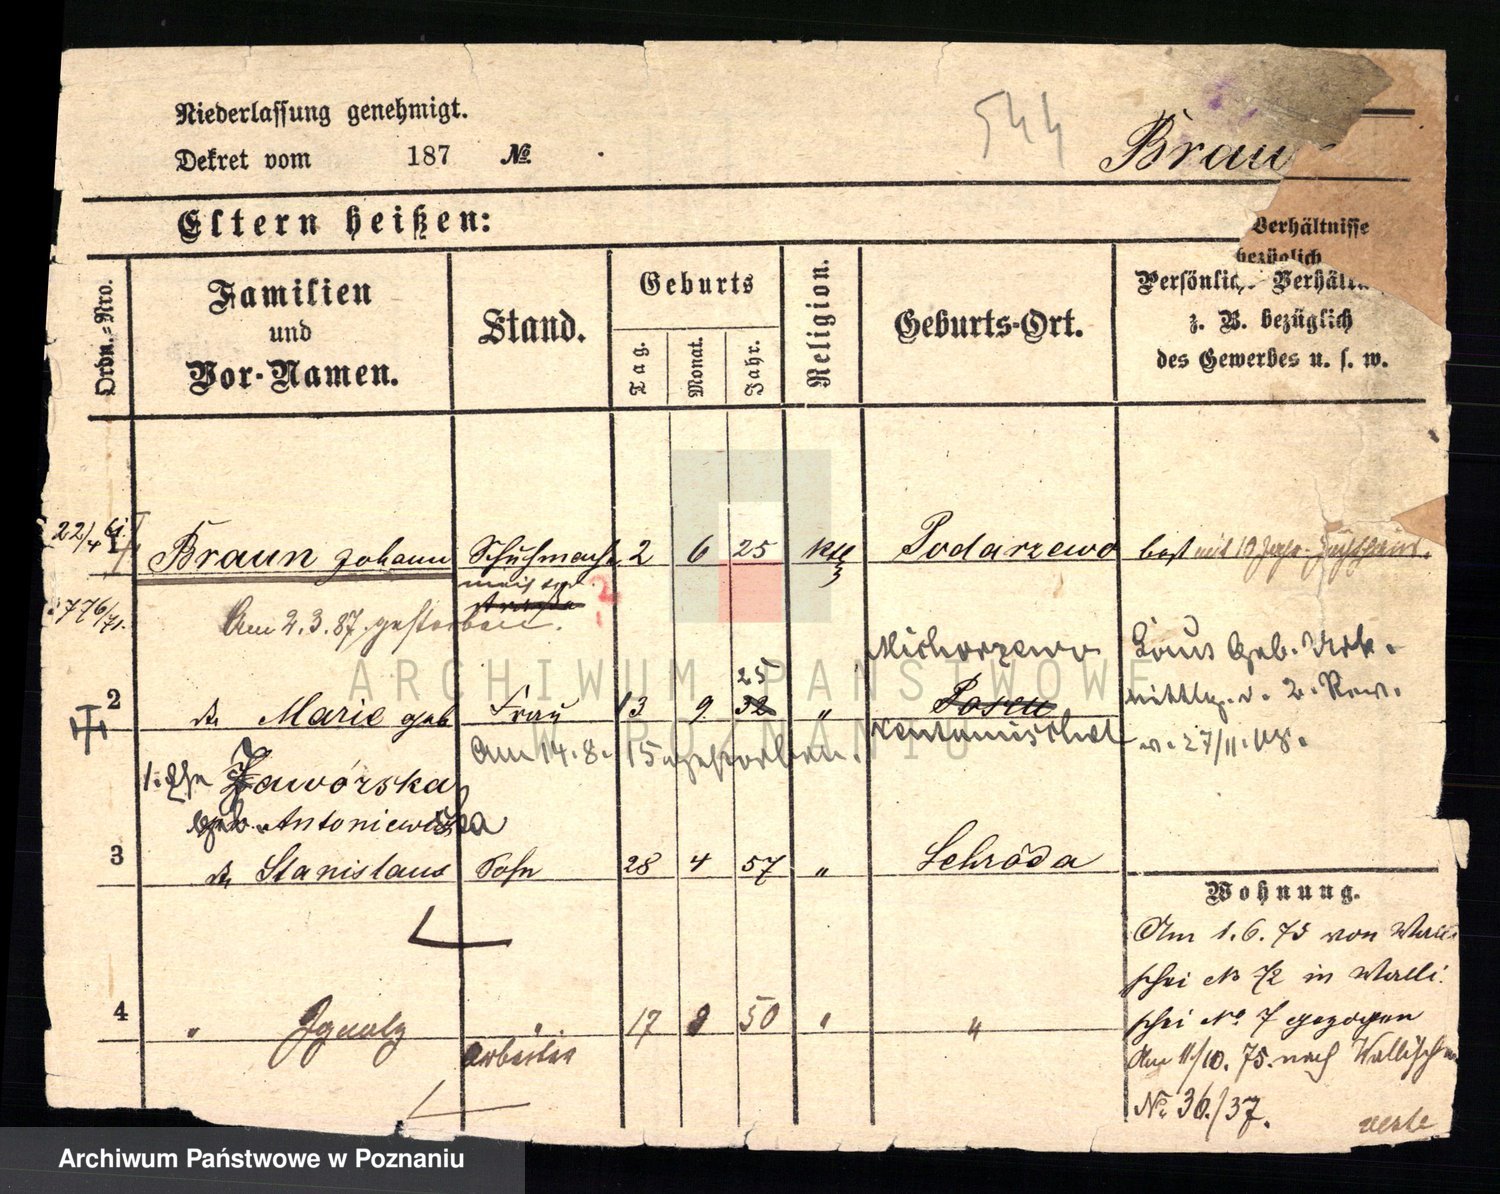 Niederlassung genehmigt.
544
Dekret vom 187 №
Brau
Eltern heißen:
Verhältnisse
bezüglich
Ordn.-Nro.
Familien
und
Vor-Namen.
Stand.
Geburts
Tag.
Monat.
Jahr.
Religion.
Geburts-Ort.
Persönlic Verhält
z. B. bezüglich
des Gewerbes u. s. w.
22/4 61
1 Braun Johann Schuhmach 2 6 25 Podarzewo
776/71.
Am 2.3.87. gestorben.
2
Michorzewo
2 Marie geb Frau 13 9 32 25 " Posen
Am 14. 8. 15 gestorben.
v. 27/11.
1. Ehe Jaworska
geb. Antoniewicz
3 Stanislaus Sohn 28 4 57 " Schroda
Wohnung.
Am 1. 6. 75 von Walli
schei № 72 in Walli
schei № 7 gezogen
Am 11/10. 75. nach Wallisch
№ 36./37.
4 " Ignatz " 17 50 " "
Arbeiter
ARCHIWUM PAŃSTWOWE
W POZNANIU
Archiwum Państwowe w Poznaniu